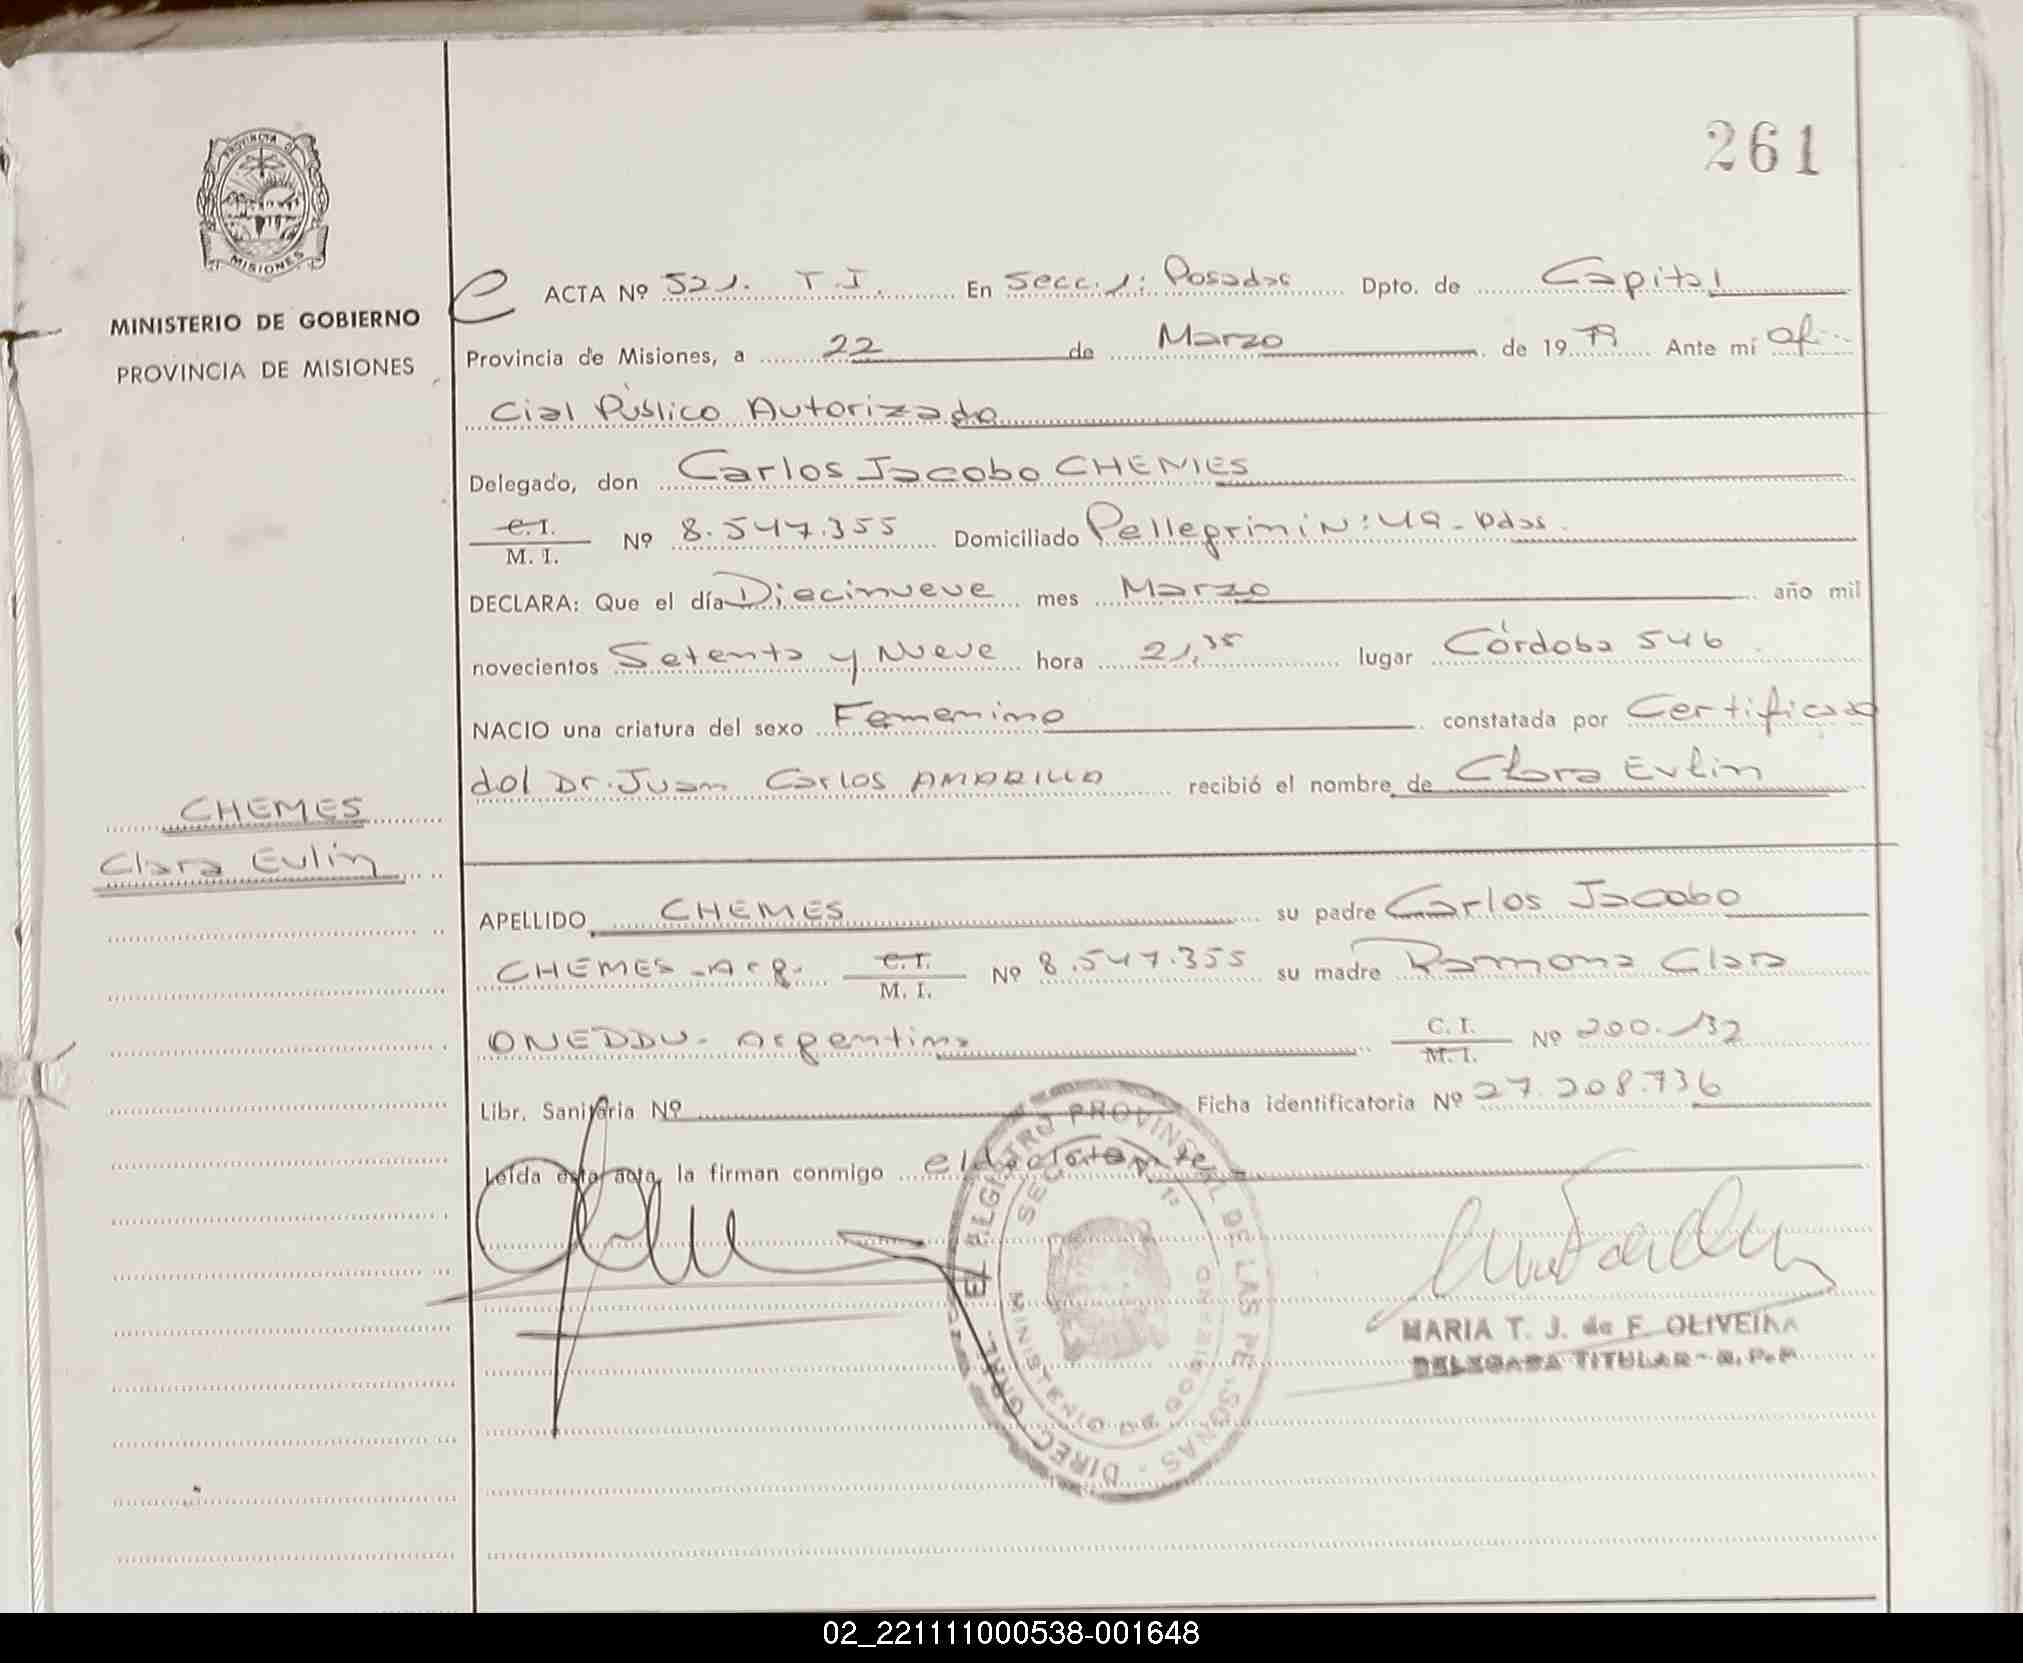 261
PROVINCIA DE
MISIONES
MINISTERIO DE GOBIERNO
PROVINCIA DE MISIONES
ACTA Nº 521. T.I. En Secc. 1: Posadas Dpto. de Capital
Provincia de Misiones, a 22 de Marzo de 1979 Ante mí Ofi-
cial Público Autorizado
Delegado, don Carlos Jacobo CHEMES
C.I.
M. I. Nº 8.547.355 Domiciliado Pellegrini N: 49 - Pdas.
DECLARA: Que el día Diecinueve mes Marzo año mil
novecientos Setenta y Nueve hora 21,35 lugar Córdoba 546
NACIO una criatura del sexo Femenino constatada por Certificado
del Dr. Juan Carlos AMARILLA recibió el nombre de Clara Evlin
CHEMES
Clara Evlin
APELLIDO CHEMES su padre Carlos Jacobo
CHEMES - Arg. C.I.
M. I. Nº 8.547.355 su madre Ramona Clara
ONEDDU - Argentina C. I.
M. I. Nº 200.132
Libr. Sanitaria Nº Ficha identificatoria Nº 27.208.736
Leída esta acta, la firman conmigo el declarante
PROVINCIAL DE LAS PERSONAS - DIREC. GRAL.
SEC 1ª
MINISTERIO DE GOBIERNO
MARIA T. J. de F. OLIVEIRA
DELEGADA TITULAR - R. P. P.
02_221111000538-001648